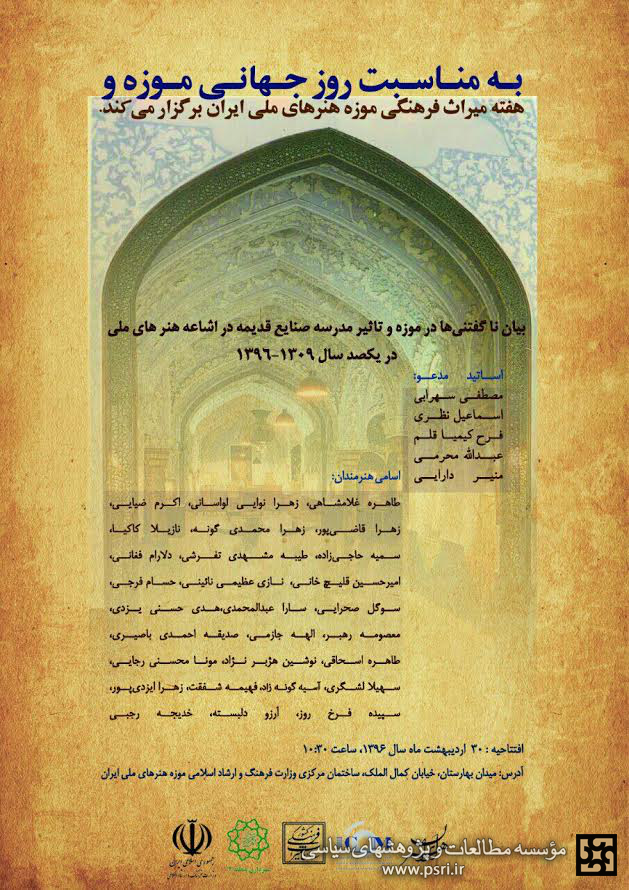 به مناسبت روز جهانی موزه و
هفته میراث فرهنگی موزه هنرهای ملی ایران برگزار می‌کند.
بیان نا گفتنی‌ها در موزه و تاثیر مدرسه صنایع قدیمه در اشاعه هنر های ملی
در یکصد سال ۱۳۰۹-۱۳۹۶
اساتید مدعو:
مصطفی سهرابی
اسماعیل نظری
فرح کیمیا قلم
عبدالله محرمی
منیر دارایی
اسامی هنرمندان:
طاهره غلامشاهی، زهرا نوایی لواسانی، اکرم ضیایی،
زهرا قاضی‌پور، زهرا محمدی گونه، نازیلا کاکیا،
سمیه حاجی‌زاده، طیبه مشهدی تفرشی، دلارام فغانی،
امیرحسین قلیچ خانی، نازی عظیمی نائینی، حسام فرجی،
سوگل صحرایی، سارا عبدالمحمدی،هدی حسنی یزدی،
معصومه رهبر، الهه جازمی، صدیقه احمدی باصیری،
طاهره اسحاقی، نوشین هژبر نژاد، مونا محسنی رجایی،
سهیلا لشگری، آسیه گونه زاد، فهیمه شفقت، زهرا ایزدی‌پور،
سپیده فرخ روز، آرزو دلبسته، خدیجه رجبی
افتتاحیه : ۳۰ اردیبهشت ماه سال ۱۳۹۶، ساعت ۱۰:۳۰
آدرس: میدان بهارستان، خیابان کمال الملک، ساختمان مرکزی وزارت فرهنگ و ارشاد اسلامی موزه هنرهای ملی ایران
جمهوری اسلامی ایران
مؤسسه مطالعات و پژوهشهای سیاسی
www.psri.ir